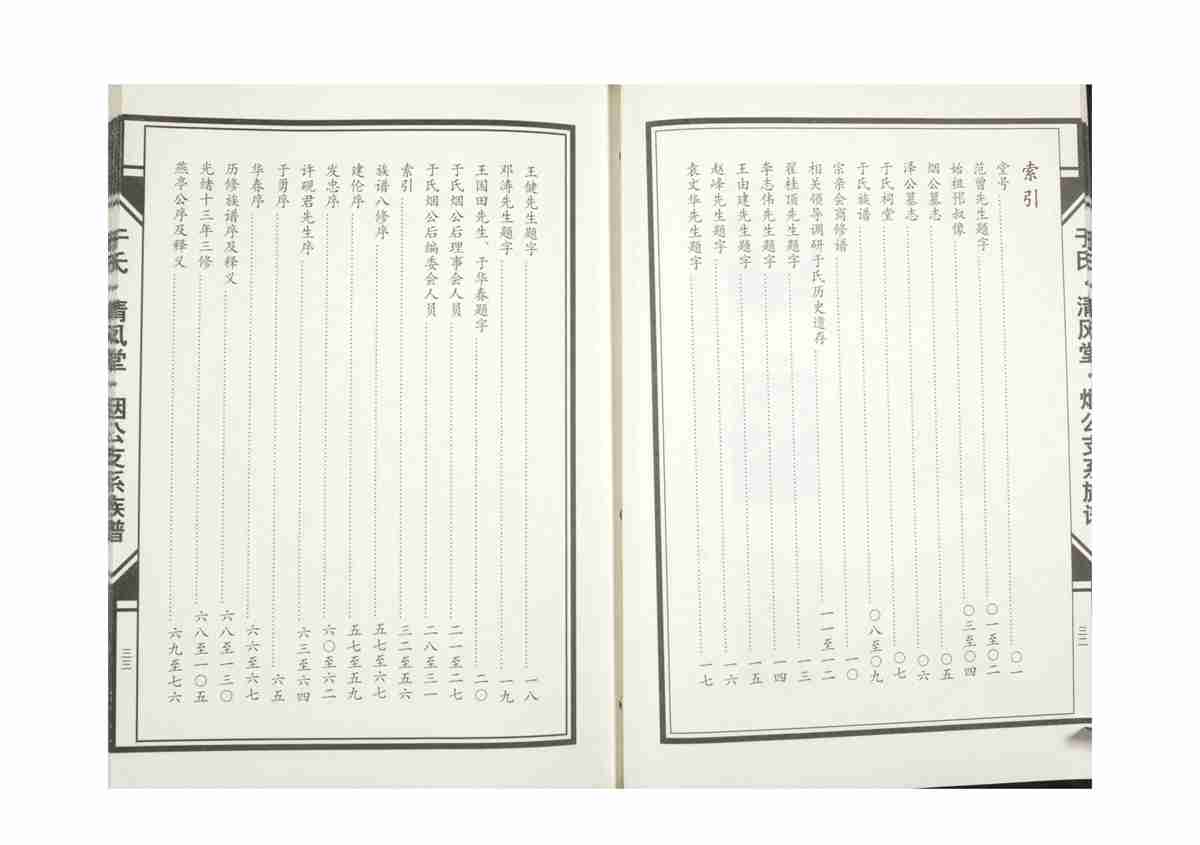 索引
堂号 〇一
范曾先生题字 〇一至〇二
始祖邘叔像 〇三至〇四
烟公墓志 〇五
泽公墓志 〇六
于氏祠堂 〇七
于氏族谱 〇八至〇九
宗亲会商修谱 一〇
相关领导调研于氏历史遗存 一一至一二
翟桂顶先生题字 一三
李志伟先生题字 一四
王由建先生题字 一五
赵峰先生题字 一六
袁文华先生题字 一七
于氏·清风堂·烟公支系族谱
三二
王健先生题字 一八
邓涛先生题字 一九
王国田先生、于华春题字 二〇
于氏烟公后理事会人员 二一至二七
于氏烟公后编委会人员 二八至三一
索引 三二至五六
族谱八修序 五七至六七
建伦序 五七至五九
发忠序 六〇至六二
许砚君先生序 六三至六四
于勇序 六五
华春序 六六至六七
历修族谱序及释义 六八至一三〇
光绪十三年三修 六八至一〇五
燕亭公序及释义 六九至七六
于氏·清风堂·烟公支系族谱
三三